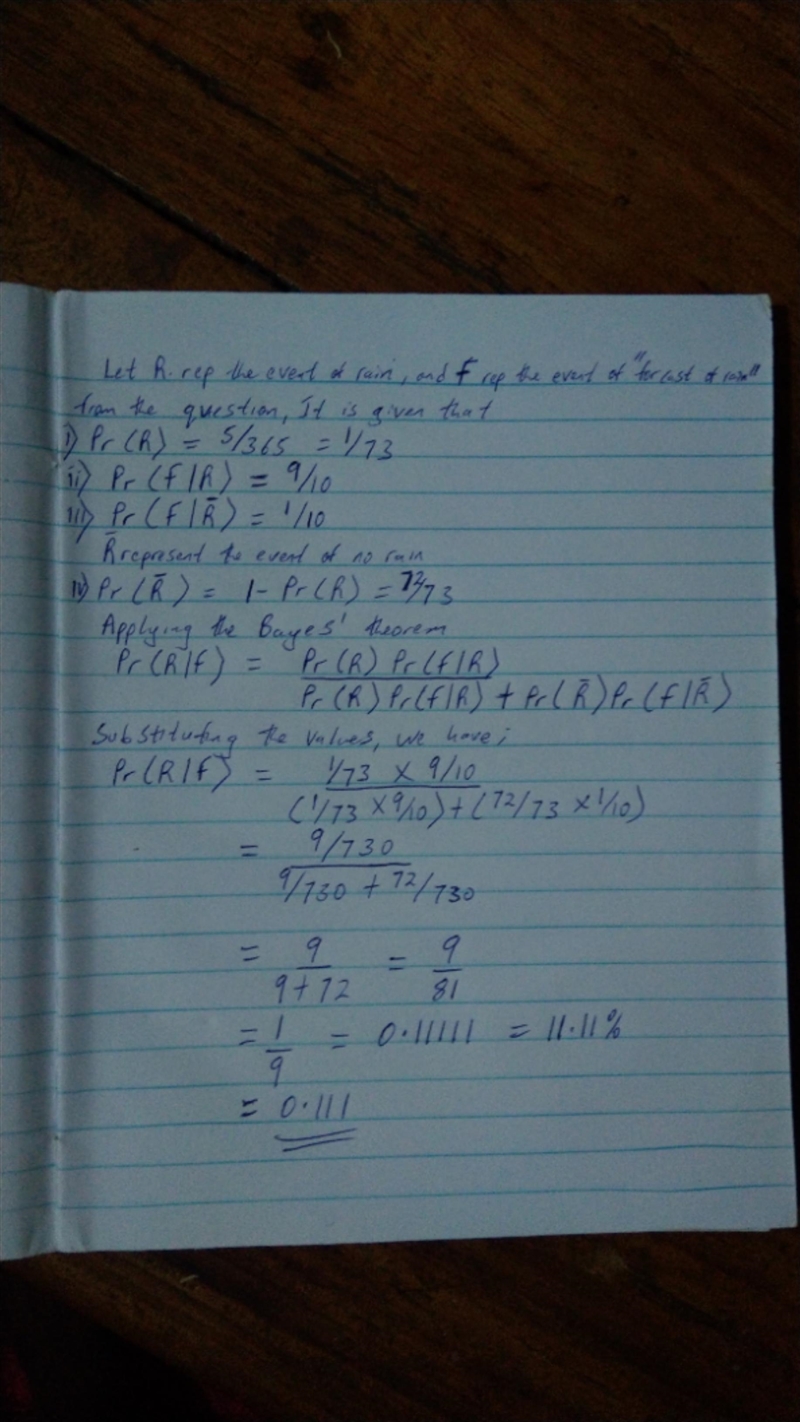 Let R. rep the event of rain, and f rep the event of "forcast of rain"
from the question, It is given that
i) Pr(R) = 5/365 = 1/73
ii) Pr(f|R) = 9/10
iii) Pr(f|R̄) = 1/10
R̄ represent the event of no rain
iv) Pr(R̄) = 1 - Pr(R) = 72/73
Applying the Bayes' theorem
Pr(R|f) = Pr(R) Pr(f|R)
Pr(R) Pr(f|R) + Pr(R̄) Pr(f|R̄)
Substituting the values, we have;
Pr(R|f) = 1/73 × 9/10
(1/73 × 9/10) + (72/73 × 1/10)
= 9/730
9/730 + 72/730
= 9 = 9
9+72 81
= 1 = 0.11111 = 11.11%
9
= 0.111